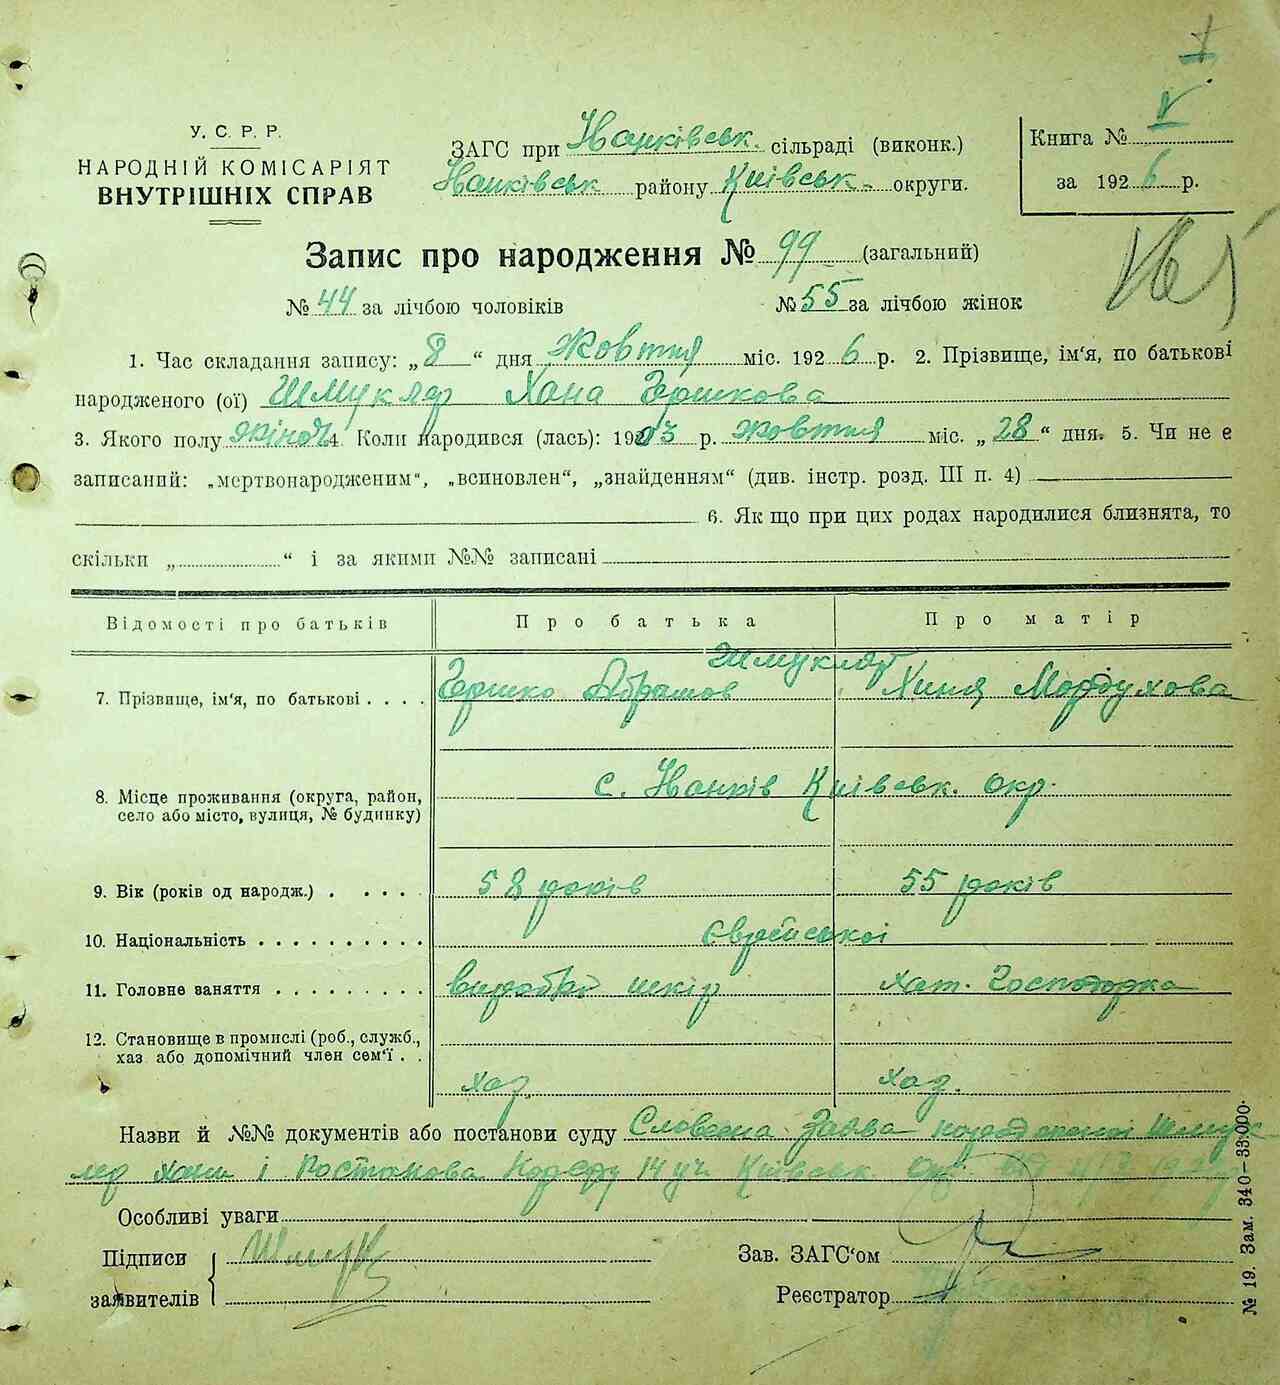 У. С. Р. Р.
НАРОДНІЙ КОМІСАРІЯТ
ВНУТРІШНІХ СПРАВ
ЗАГС при сільраді (виконк.)
району Київськ. округи.
Книга № V
за 1926 р.
Запис про народження № 99 (загальний)
№ 44 за лічбою чоловіків № 55 за лічбою жінок
1. Час складання запису: „8“ дня Жовтня міс. 1926 р. 2. Прізвище, ім'я, по батькові
народженого (ої) Шмукляр Хана Гершкова
3. Якого полу жіноч 4. Коли народився (лась): 1903 р. Жовтня міс. „28“ дня. 5. Чи не є
записаний: „мертвонародженим“, „всиновлен“, „знайденням“ (див. інстр. розд. III п. 4)
6. Як що при цих родах народилися близнята, то
скільки „ “ і за якими №№ записані
Відомості про батьків Про батька Про матір
Шмукляр
7. Прізвище, ім'я, по батькові . . . . Гершко Абрамов Хиня Мордухова
8. Місце проживання (округа, район,
село або місто, вулиця, № будинку)
с. Київськ. окр.
9. Вік (років од народж.) . . . . . 58 років 55 років
10. Національність . . . . . . . . . . Єврейської
11. Головне заняття . . . . . . . . . шкір Хат. Господарка
12. Становище в промислі (роб., служб.,
хаз або допомічний член сем'ї . .
хаз. хаз.
Назви й №№ документів або постанови суду Словесна Заява Шмук
ляр Хани і Постанова Нарсуду 14 уч. Київськ. Окр.
Особливі уваги
Підписи
заявителів
Зав. ЗАГС'ом
Реєстратор
№ 19. Зам. 340—33.000.